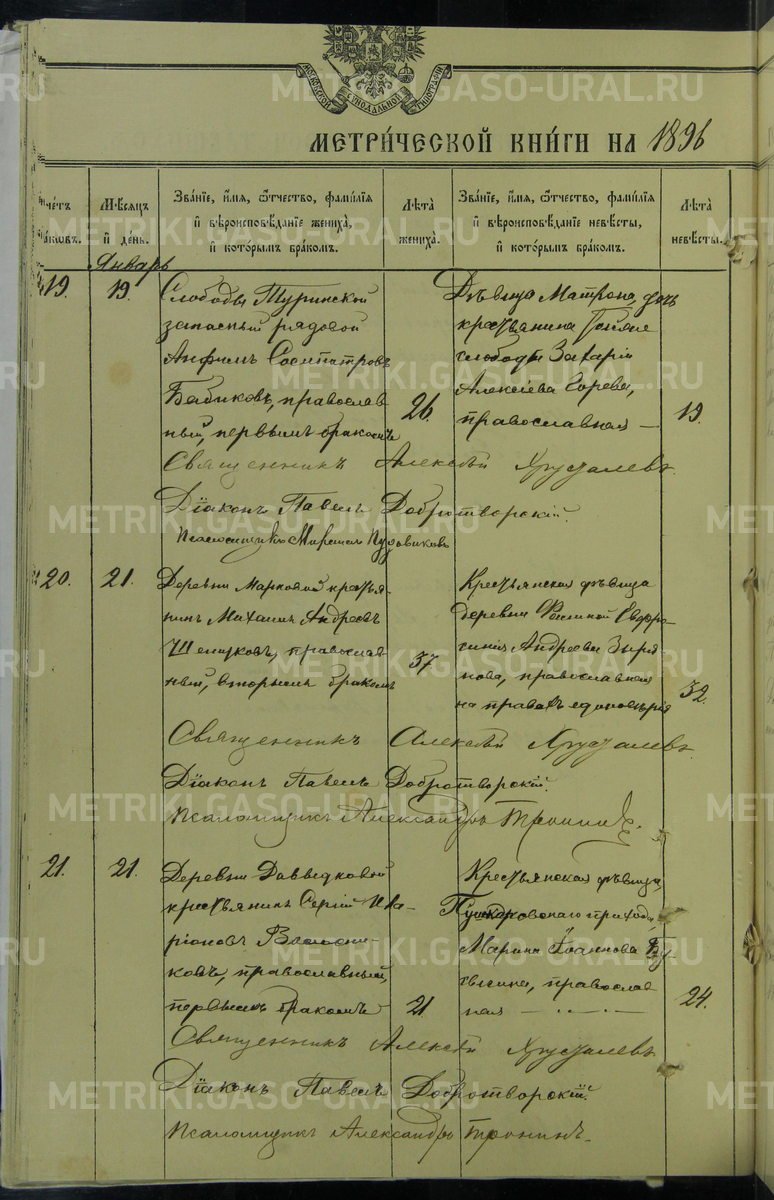 МОСКОВСКОЙ СѴНОДАЛЬНОЙ ТИПОГРАФІИ
МЕТРИ́ЧЕСКОЙ КНИ́ГИ НА 1896
Счетъ браковъ.
Мѣсяцъ и день.
Зва́нїе, и́мя, ѻ҆́тчество, фами́лїя и҆ вѣроисповѣ́данїе жениха̀, и҆ кото́рымъ бра́комъ.
Лѣта̀ жениха̀.
Зва́нїе, и́мя, ѻ҆́тчество, фами́лїя и҆ вѣроисповѣ́данїе невѣ́сты, и҆ кото́рымъ бра́комъ.
Лѣта̀ невѣ́сты.
Январь
19. 19.
Слободы Туринской
запасный рядовой
Анфимъ Сосипатровъ
Бабиковъ, православ
ный, первымъ бракомъ
26.
Дѣвица Матрона, дочь
крестьянина
слободы Захарія
Алексіева Горева,
православная —
19.
Священникъ Алексѣй Хрусталевъ.
Дїаконъ Павелъ Добротворскій.
Псаломщикъ
20. 21.
Деревни Марковой кресть-
янинъ Михаилъ Андреевъ
православ
ный, вторымъ бракомъ
37
Крестьянская дѣвица
деревни Евфро-
синія Андреева Зыря
нова, православная
на правахъ единовѣрія
32.
Священникъ Алексѣй Хрусталевъ.
Дїаконъ Павелъ Добротворскій.
Псаломщикъ Александръ Тронинъ.
21. 21.
Деревни Давыдковой
крестьянинъ Сергій Ила-
ріоновъ
ковъ, православный,
первымъ бракомъ
21
Крестьянская дѣвица,
прихода,
Марина Іоаннова
православ
ная — · — · —
24.
Священникъ Алексѣй Хрусталевъ.
Дїаконъ Павелъ Добротворскій.
Псаломщикъ Александръ Тронинъ.
METRIKI.GASO-URAL.RU